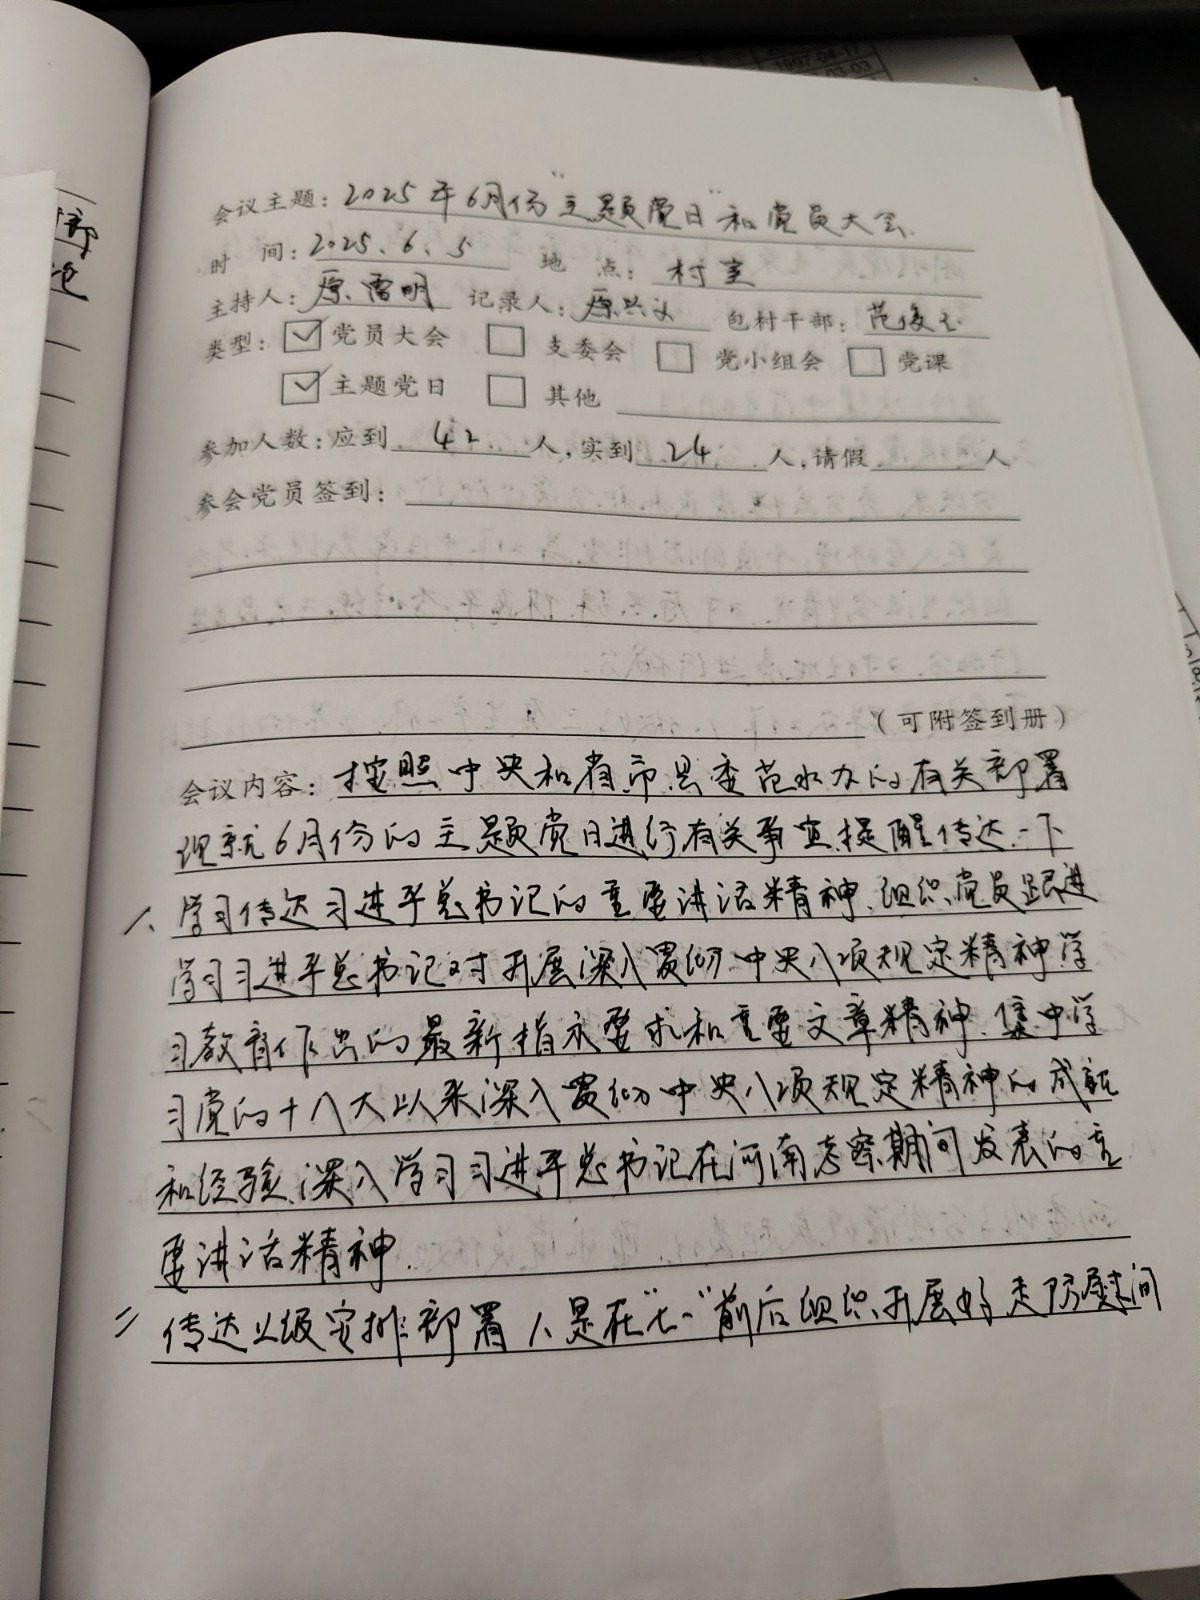 1997-04-17
03-03
部
会议主题：2025年6月份"主题党日"和党员大会.
时 间：2025.6.5 地 点：村室
主持人：原雷明 记录人：原兴义 包村干部：范俊
类型：☑党员大会 □支委会 □党小组会 □党课
☑主题党日 □其他
参加人数：应到 42 人，实到 24 人，请假 人
参会党员签到：
（可附签到册）
会议内容：按照中央和省市县委范水办的有关部署
现就6月份的主题党日进行有关事宜提醒传达一下
一、学习传达习进平总书记的重要讲话精神、组织党员跟进
学习习进平总书记对开展深入贯彻中央八项规定精神学
习教育作出的最新指示要求和重要文章精神、集中学
习党的十八大以来深入贯彻中央八项规定精神的成就
和经验、深入学习习进平总书记在河南考察期间发表的重
要讲话精神.
二 传达上级安排部署 1、是在"七一"前后组织开展好走访慰问